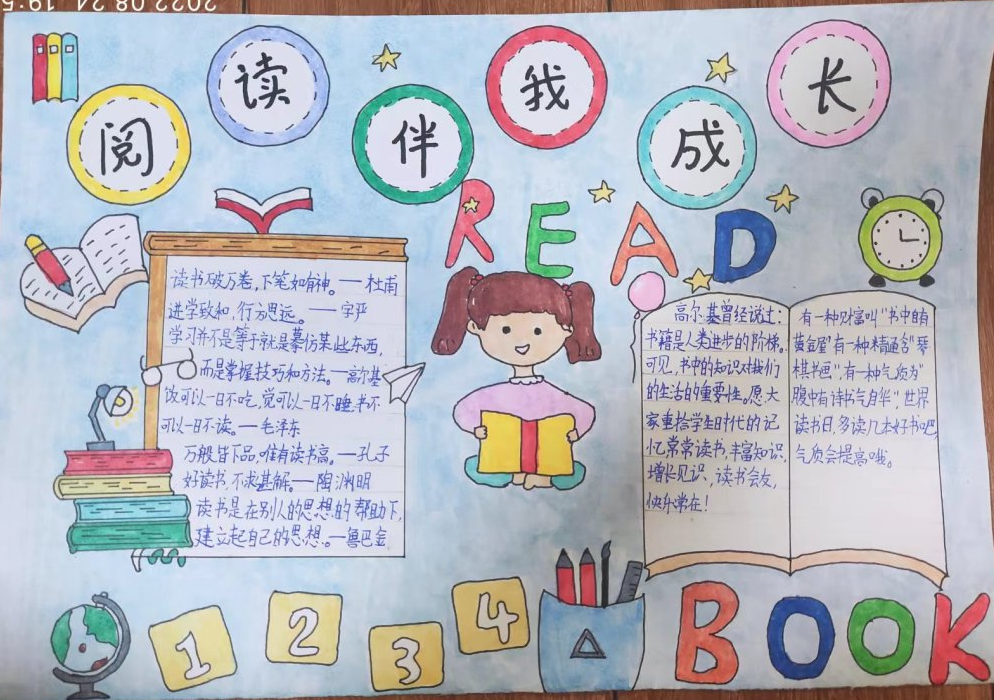 阅读伴我成长
READ
读书破万卷，下笔如有神。——杜甫
进学致和，行方思远。——字严
学习并不是等于就是摹仿某些东西，
而是掌握技巧和方法。——高尔基
饭可以一日不吃，觉可以一日不睡，书不
可以一日不读。——毛泽东
万般皆下品，唯有读书高。——孔子
好读书，不求甚解。——陶渊明
读书是在别人的思想的帮助下，
建立起自己的思想。——鲁巴金
高尔基曾经说过：
书籍是人类进步的阶梯。
可见，书中的知识对我们
的生活的重要性。愿大
家重拾学生时代的记
忆常常读书，丰富知识，
增长见识，读书会友，
快乐常在！
有一种财富叫"书中自有
黄金屋"有一种精通含"琴
棋书画"，有一种气质为"
腹中有诗书气自华"，世界
读书日，多读几本好书吧，
气质会提高哦。
1 2 3 4
BOOK
2022.08.24 19:5